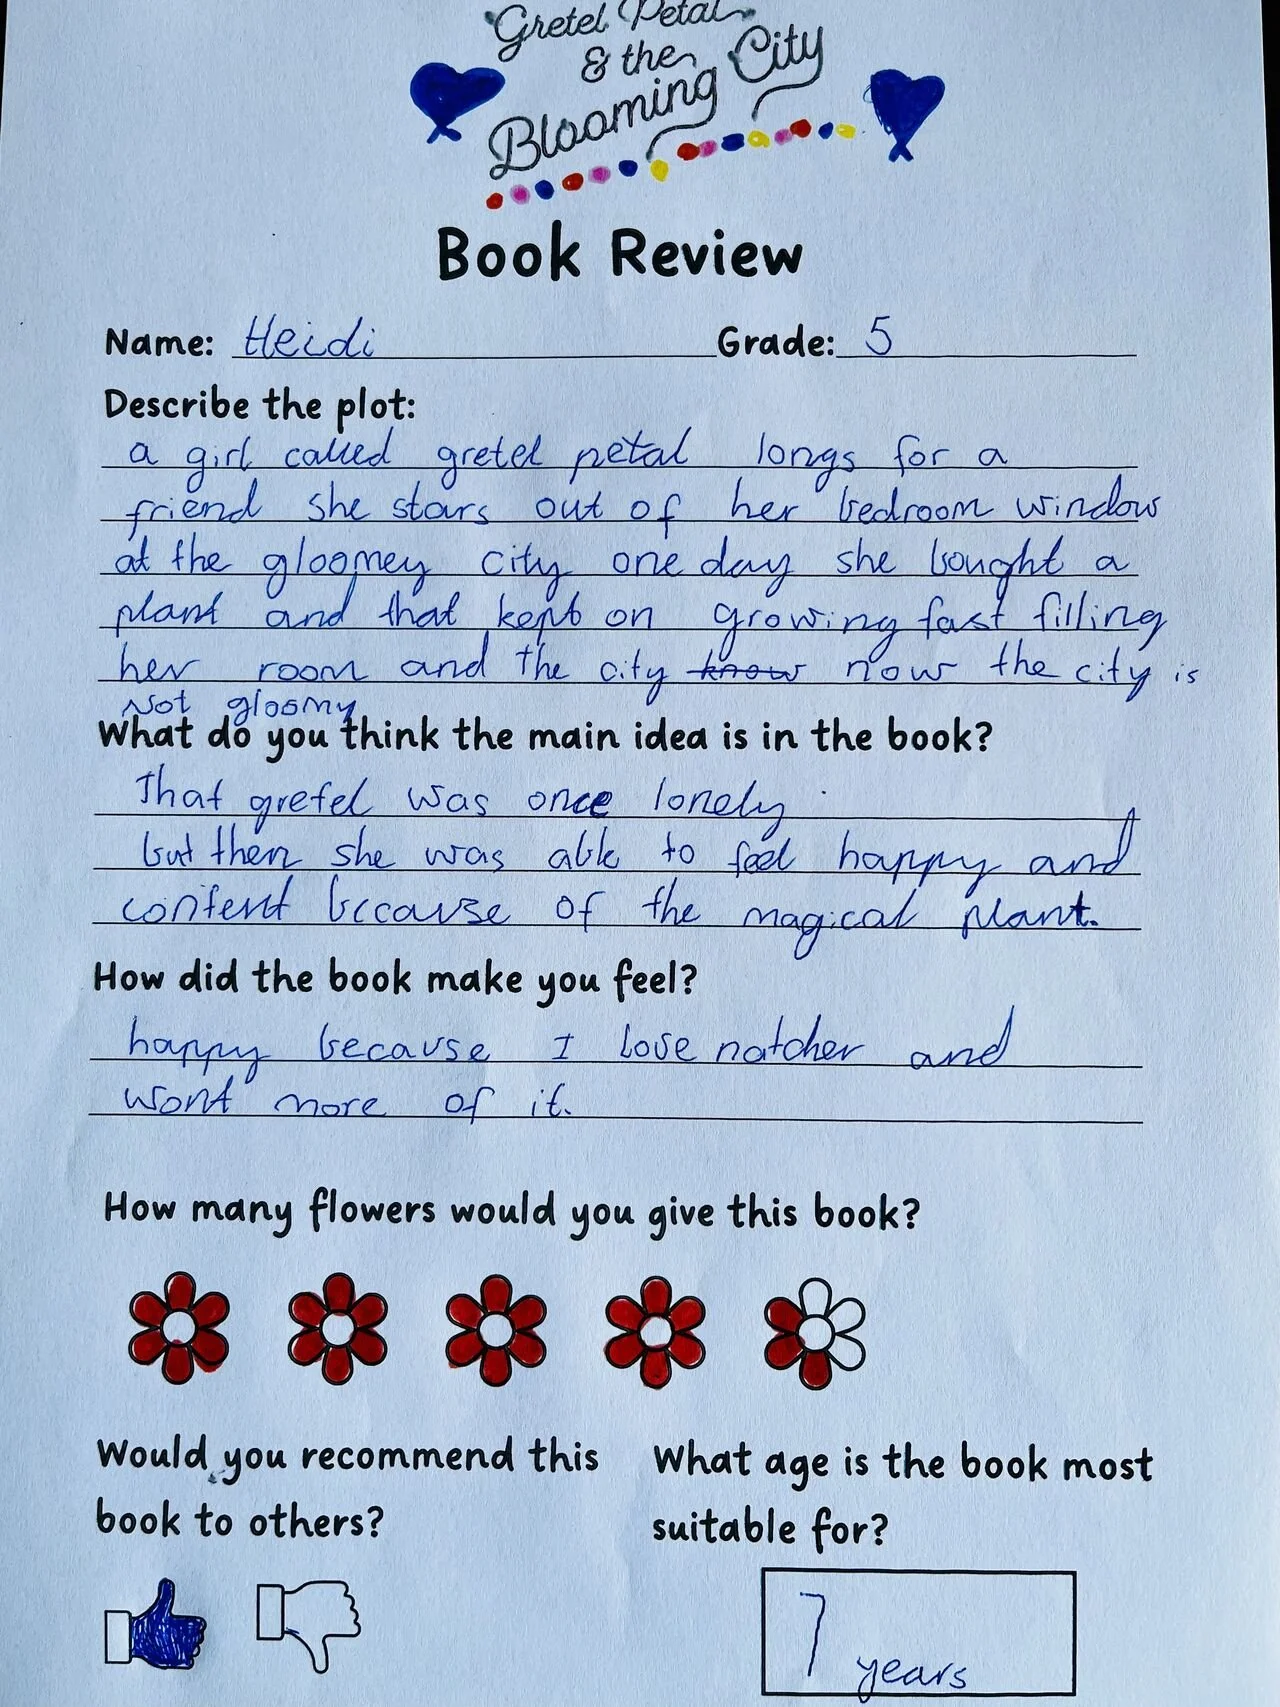 Gretel Petal
& the
Blooming City
Book Review
Name: Heidi Grade: 5
Describe the plot:
a girl called gretel petal longs for a
friend she stars out of her bedroom window
at the gloomey city one day she bought a
plant and that kept on growing fast filling
her room and the city know now the city is
Not gloomy
What do you think the main idea is in the book?
That gretel was once lonely
but then she was able to feel happy and
content because of the magical plant.
How did the book make you feel?
happy because I love natcher and
wont more of it.
How many flowers would you give this book?
Would you recommend this
book to others?
What age is the book most
suitable for?
7 years